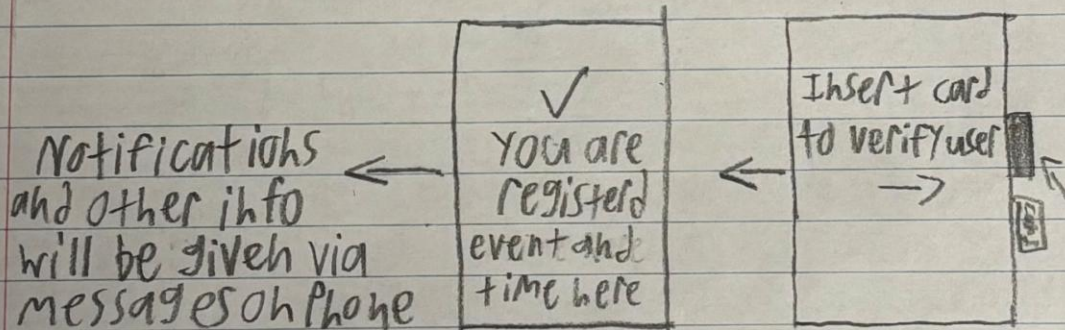 Notifications
and other info
will be given via
messages on Phone
✓
You are
registerd
event and
time here
Insert card
to verify user